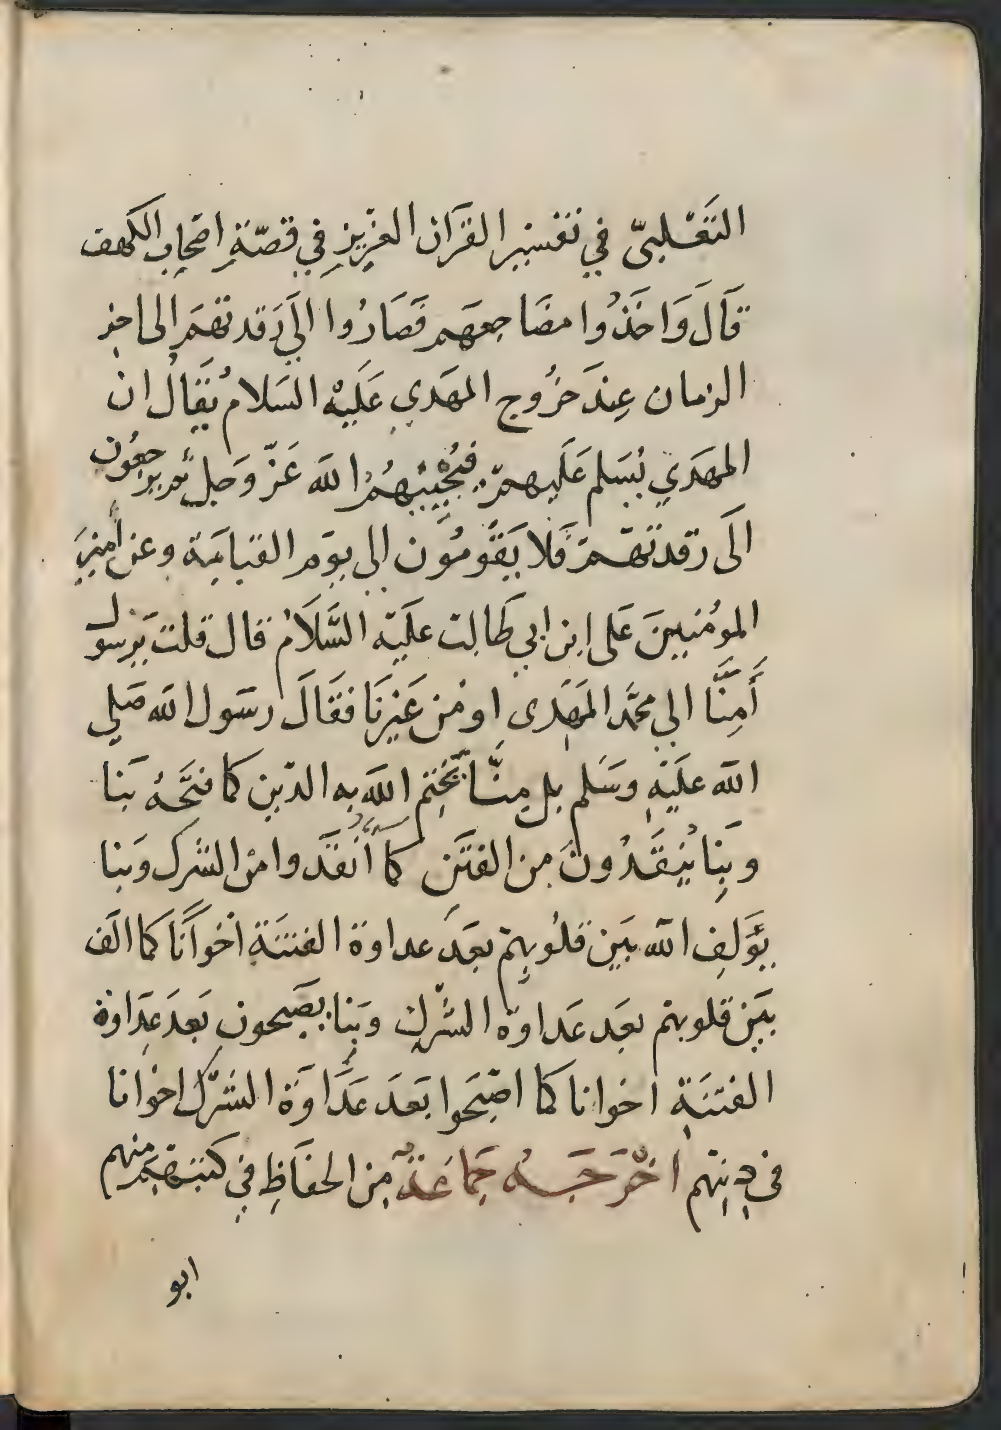 الثَعْلبىّ في تفسير القرآن العزيزِ في قصّةِ اصحاب الكهف
قَالَ وَاخَذُوا مضَاجعهَم فَصَارُوا الَى رَقدتهمَ الى اخرِ
الزمان عِندَ خرُوج المهَدي عَلَيهْ السَلام يُقالُ ان
المهَدي يُسَلم عَلَيهمّ فيُحْيِيْهُمُ الله عَزّ وَجل ثم يرجعُون
الَى رقدتهّم فَلا يَقوُمُون الى يوَم القيامَة وعن أمير
المومُنيينَ عَلى ابن ابي طَالبْ عليَه السَّلاَم قال قلت يَرسول
أَمِنَّا الي محمَّد المهَدى اومْن غَيرنَا فقَالَ رسَول الله صَلي
الله علَيهِ وسَلم بل مِنّا يَختِم اللهَ به الدّين كما فتحَهُ بَنا
وبِنا يُنقَذُونَ مِن الفتَن كَما أنُقذَوا مْن الشرك وَبنا
يؤَلف الله بَين قلوُبهِمْ بعَد عداوة الفتنَةِ اخْواَنًا كَما الَف
بيَن قلوبهم بعَد عَداوَة الشّرك وَبنا يصَبحون بَعدَ عدَاوة
الفتنَةِ اخوانا كما اصَبحوا بَعدَ عَدَاوَة الشرّك اخوانا
في دِينهم اخْرَجَهُ جَماعَةٌ مِن الحفاَظِ في كتبهمِ منهم
ابو